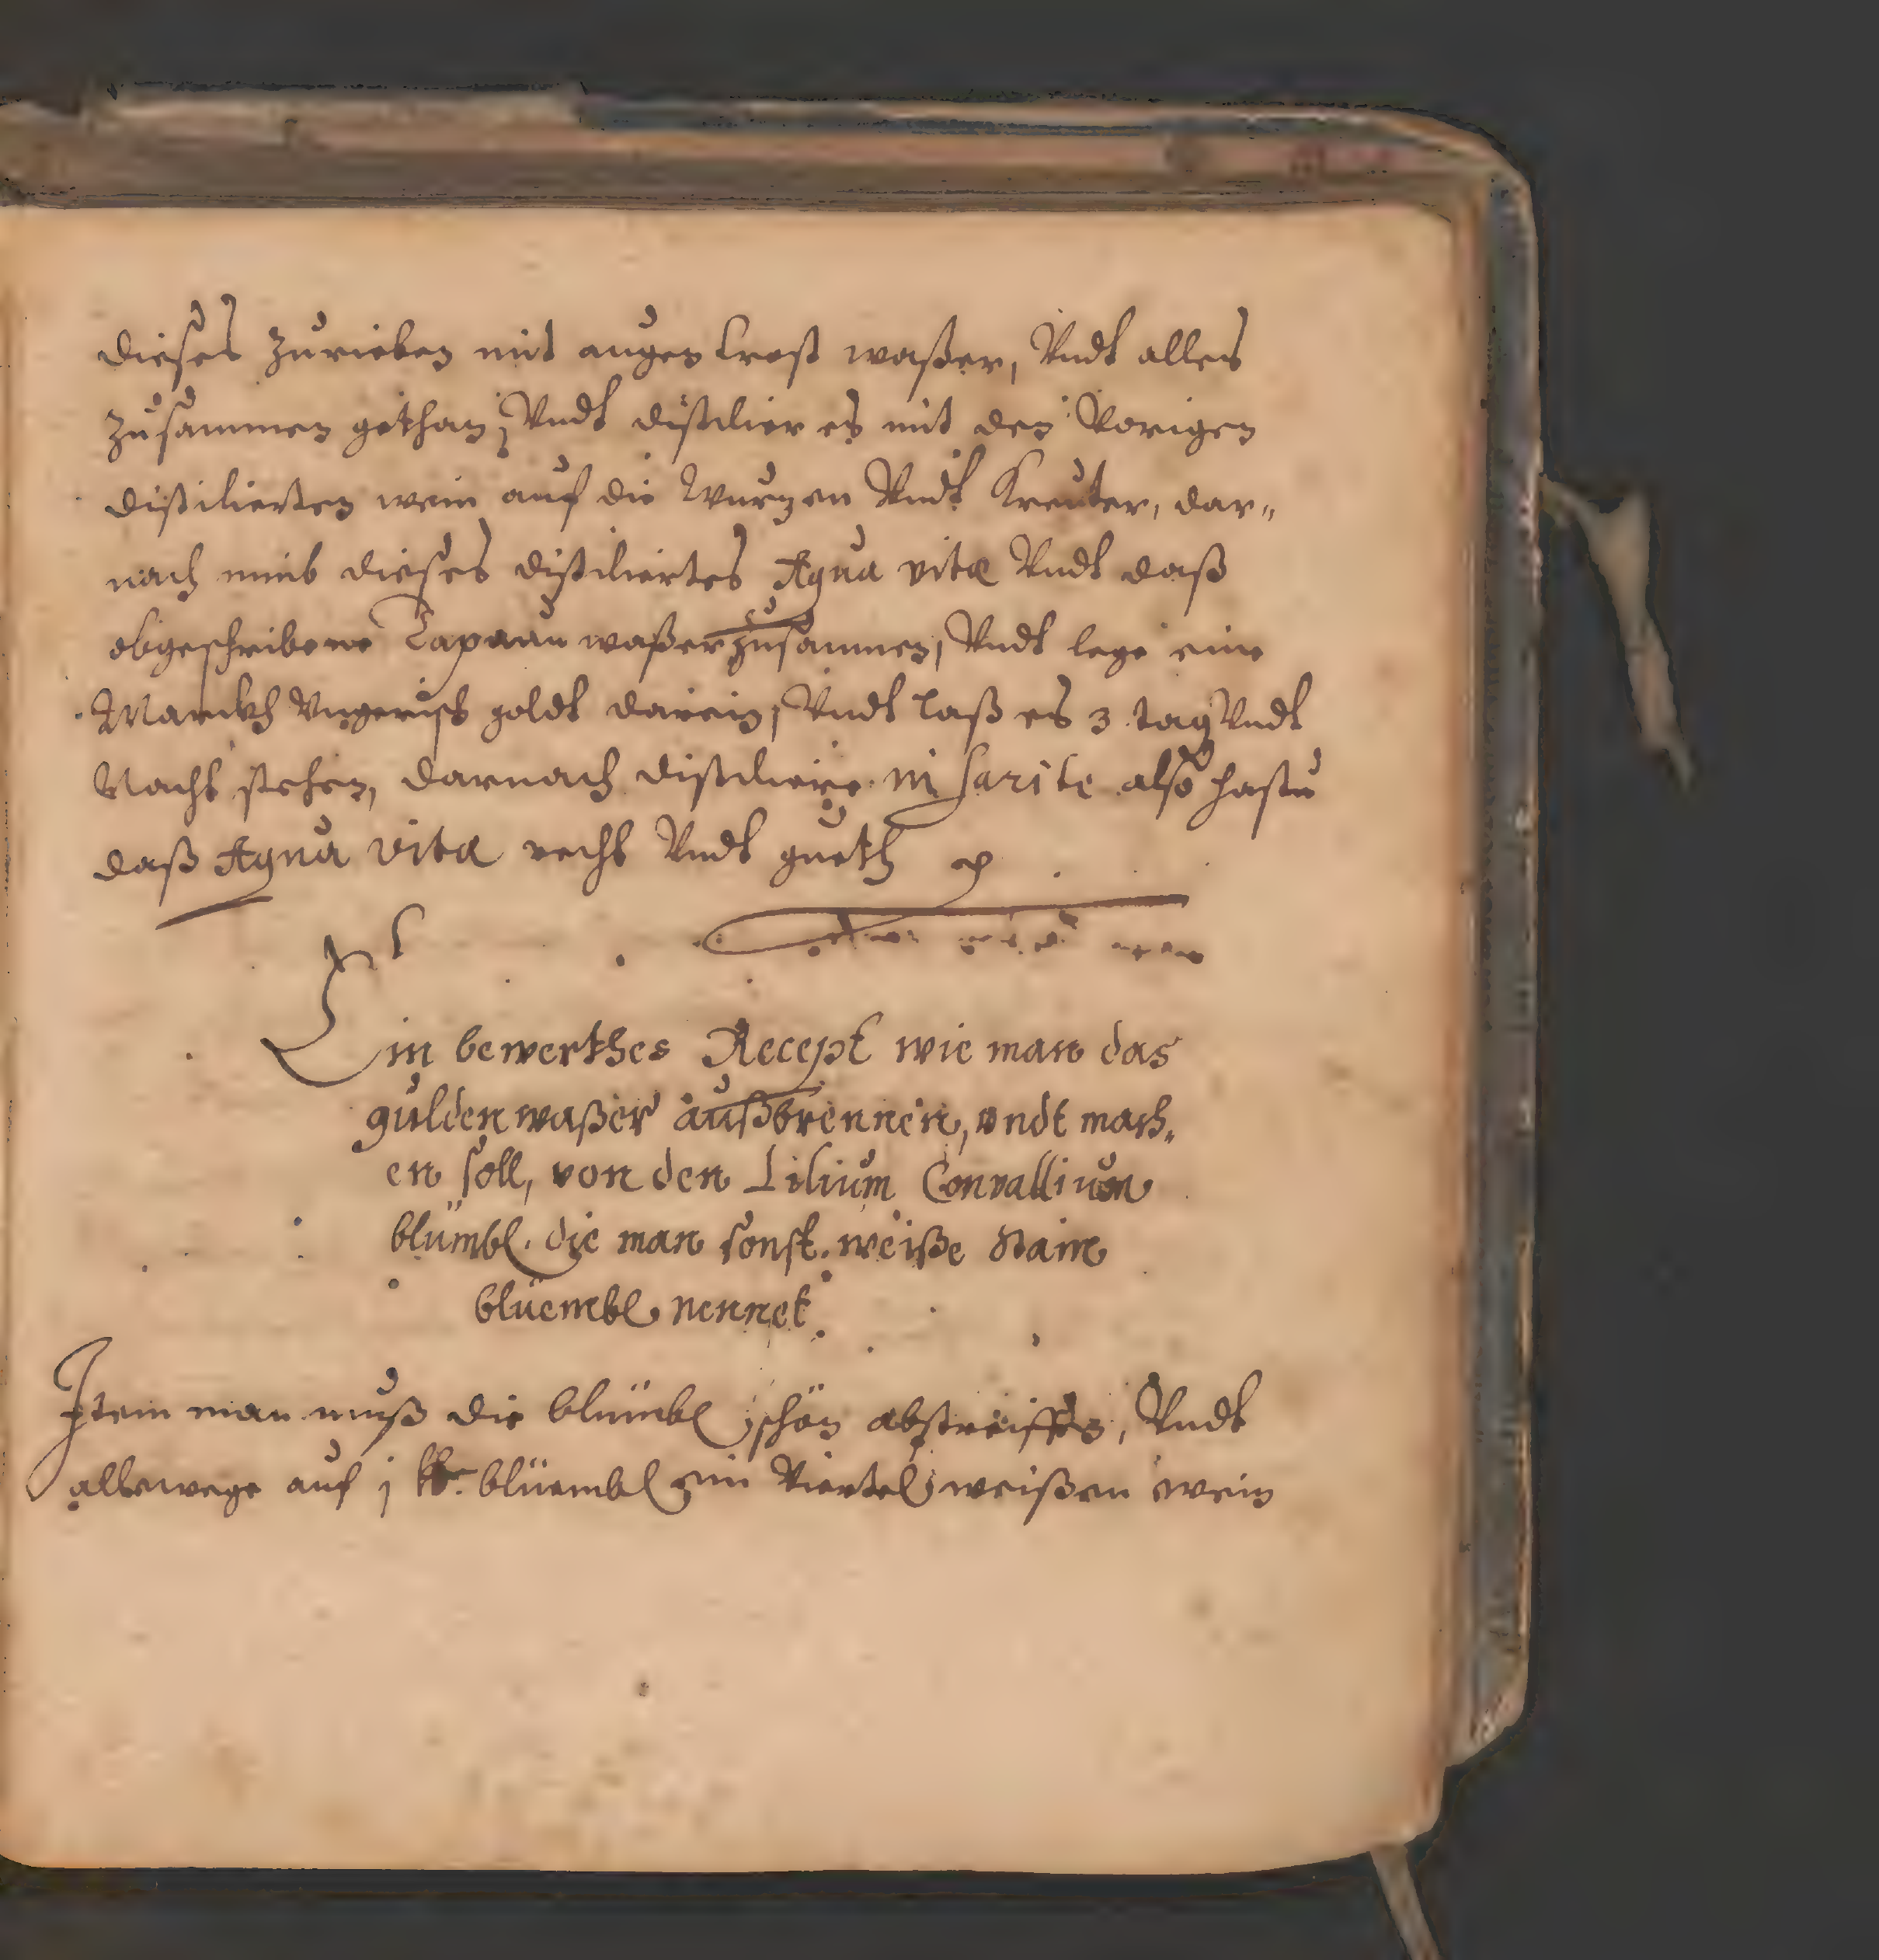 dieses zurieben mit augen trost waßer, Vndt alles
zusammen gethan, Vndt distilier es mit den Vorigen
distilierten wein auf die Wurzen Vndt Kreuter, dar„
nach nimb dieses distiliertes Aqua vitæ Vndt daß
obgeschribene Capaun waßer zusammen, Vndt lege eine
Marckh Vngerisch goldt darein, Vndt laß es 3 tag Vndt
Nacht stehen, darnach distiliere in also hastu
daß Aqua vitæ recht Vndt gueth
Ein bewerthes Recept wie man das
gulden waßer außbrennen, vndt mach„
en soll, von den Lilium Convallium
blümbl. die man sonst weiße
blüembl nennet
Item man muß die blümbl schön abstreiffen, Vndt
allewege auf j lb. blüembl ein Viertel weißen wein